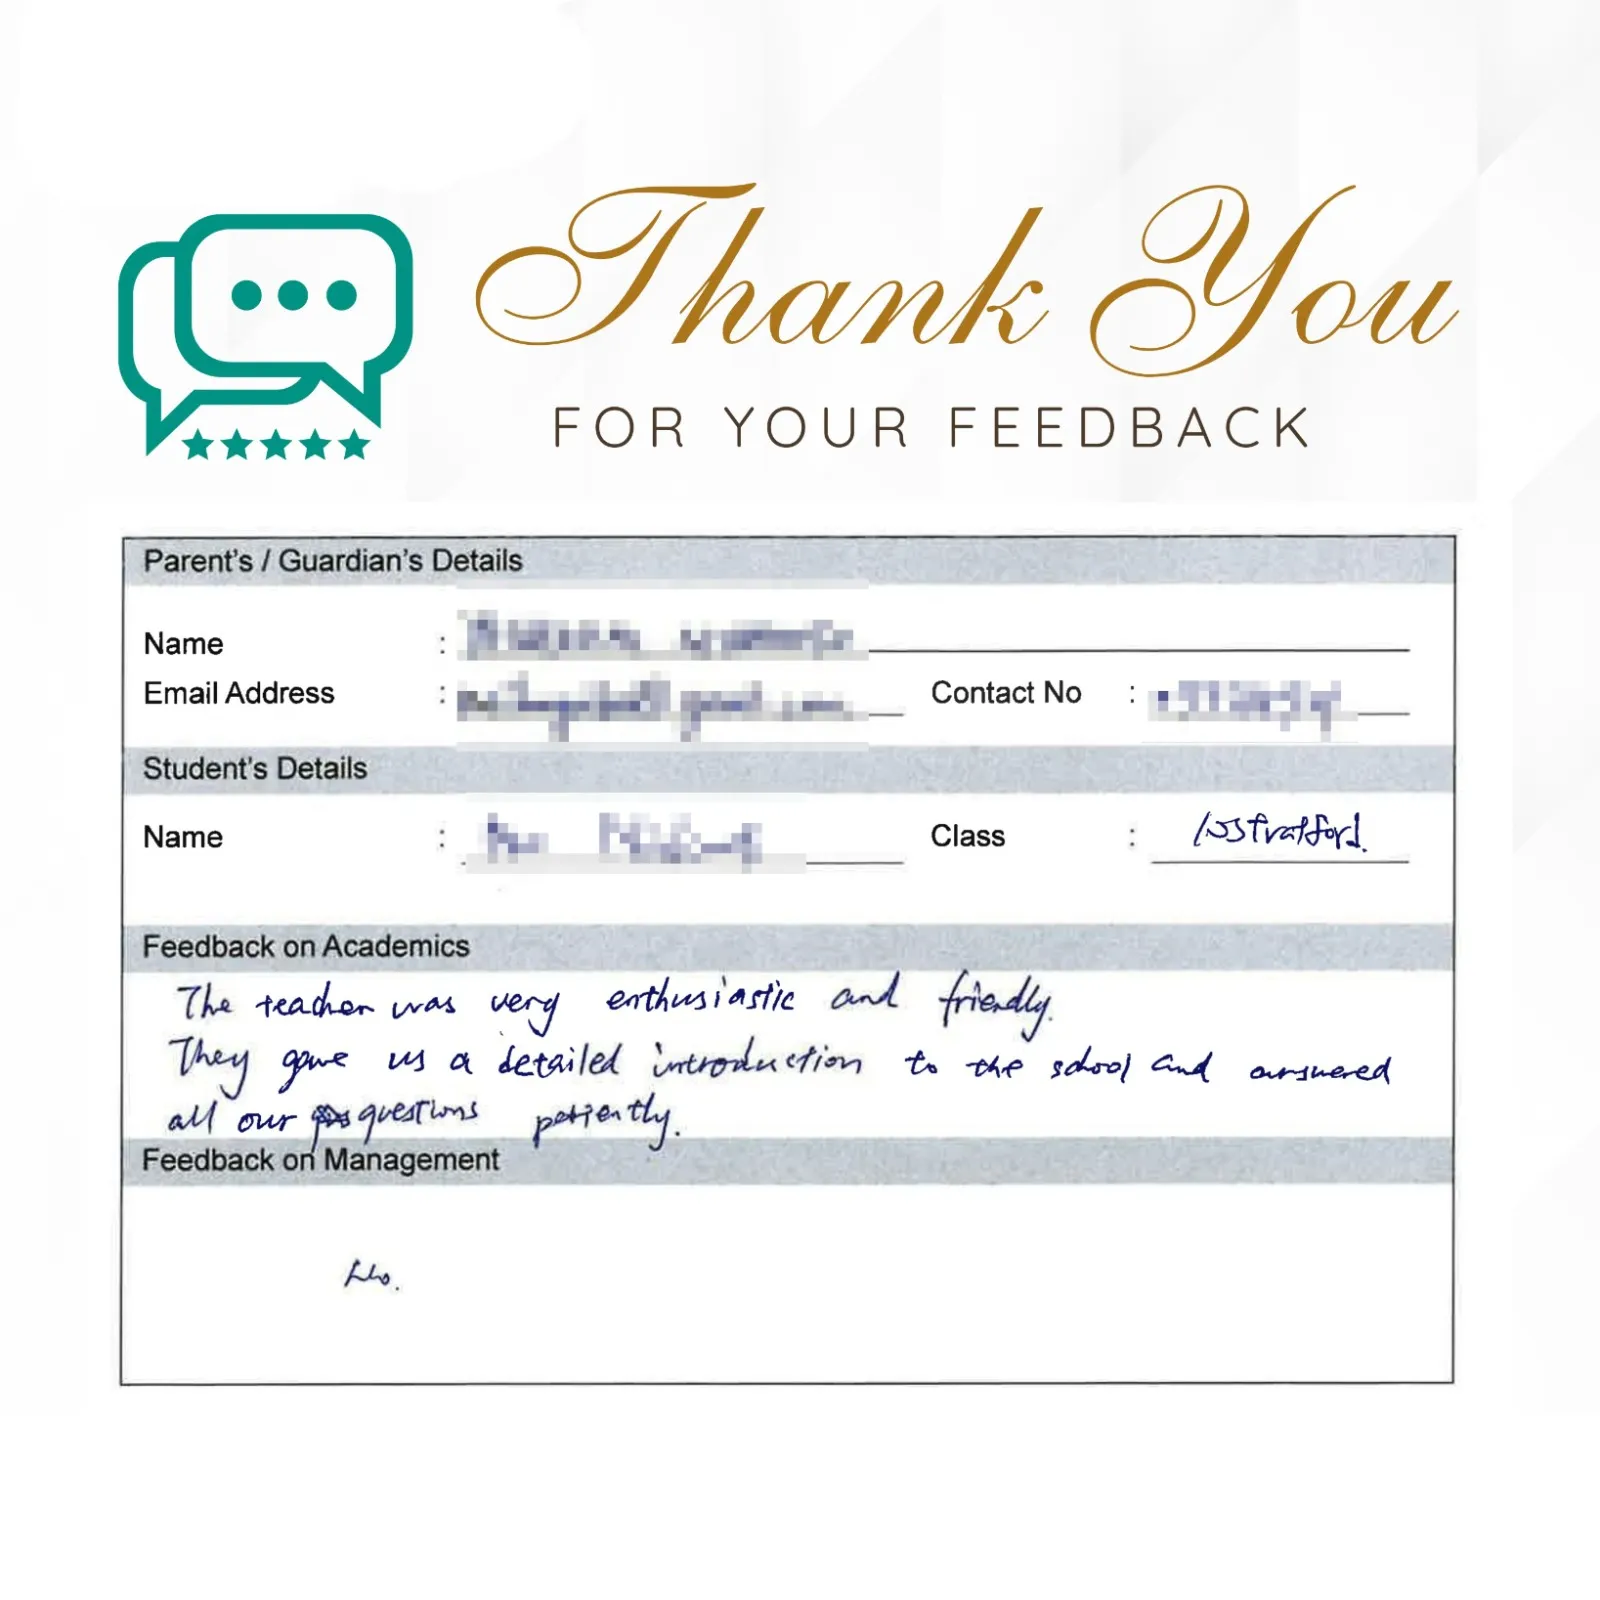 Thank You
FOR YOUR FEEDBACK
Parent's / Guardian's Details
Name :
Email Address : Contact No :
Student's Details
Name : Class : Stratford.
Feedback on Academics
The teacher was very enthusiastic and friendly.
They gave us a detailed introduction to the school and answered
all our questions patiently.
Feedback on Management
No.